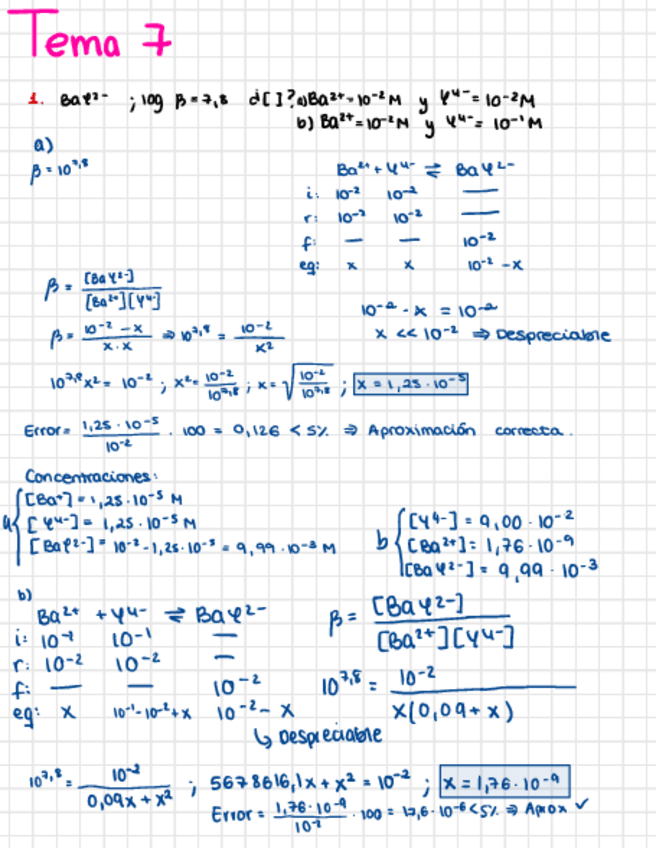 Tema 7
1. BaY²⁻ ; log β = 7,8 ¿[ ]? a) Ba²⁺ = 10⁻² M y Y⁴⁻ = 10⁻² M
b) Ba²⁺ = 10⁻² M y Y⁴⁻ = 10⁻¹ M
a)
β = 10⁷,⁸
Ba²⁺ + Y⁴⁻ ⇄ BaY²⁻
i: 10⁻² 10⁻² —
r: 10⁻² 10⁻² —
f: — — 10⁻²
eq: x x 10⁻² - x
β = [BaY²⁻] / [Ba²⁺][Y⁴⁻]
10⁻² - x = 10⁻²
β = 10⁻² - x / x · x ⇒ 10⁷,⁸ = 10⁻² / x²
x << 10⁻² ⇒ Despreciable
10⁷,⁸ x² = 10⁻² ; x² = 10⁻² / 10⁷,⁸ ; x = √10⁻² / 10⁷,⁸ ; x = 1,25 · 10⁻⁵
Error = 1,25 · 10⁻⁵ / 10⁻² · 100 = 0,126 < 5% ⇒ Aproximación correcta.
Concentraciones:
a { [Ba⁺] = 1,25 · 10⁻⁵ M
[Y⁴⁻] = 1,25 · 10⁻⁵ M
[BaY²⁻] = 10⁻² - 1,25 · 10⁻⁵ = 9,99 · 10⁻³ M
b { [Y⁴⁻] = 9,00 · 10⁻²
[Ba²⁺] = 1,76 · 10⁻⁹
[BaY²⁻] = 9,99 · 10⁻³
b)
Ba²⁺ + Y⁴⁻ ⇄ BaY²⁻
i: 10⁻² 10⁻¹ —
r: 10⁻² 10⁻² —
f: — — 10⁻²
eq: x 10⁻¹ - 10⁻² + x 10⁻² - x
↳ Despreciable
β = [BaY²⁻] / [Ba²⁺][Y⁴⁻]
10⁷,⁸ = 10⁻² / x(0,09 + x)
10⁷,⁸ = 10⁻² / 0,09x + x² ; 5678616,1x + x² = 10⁻² ; x = 1,76 · 10⁻⁹
Error = 1,76 · 10⁻⁹ / 10⁻² · 100 = 17,6 · 10⁻⁶ < 5% ⇒ Aprox ✓